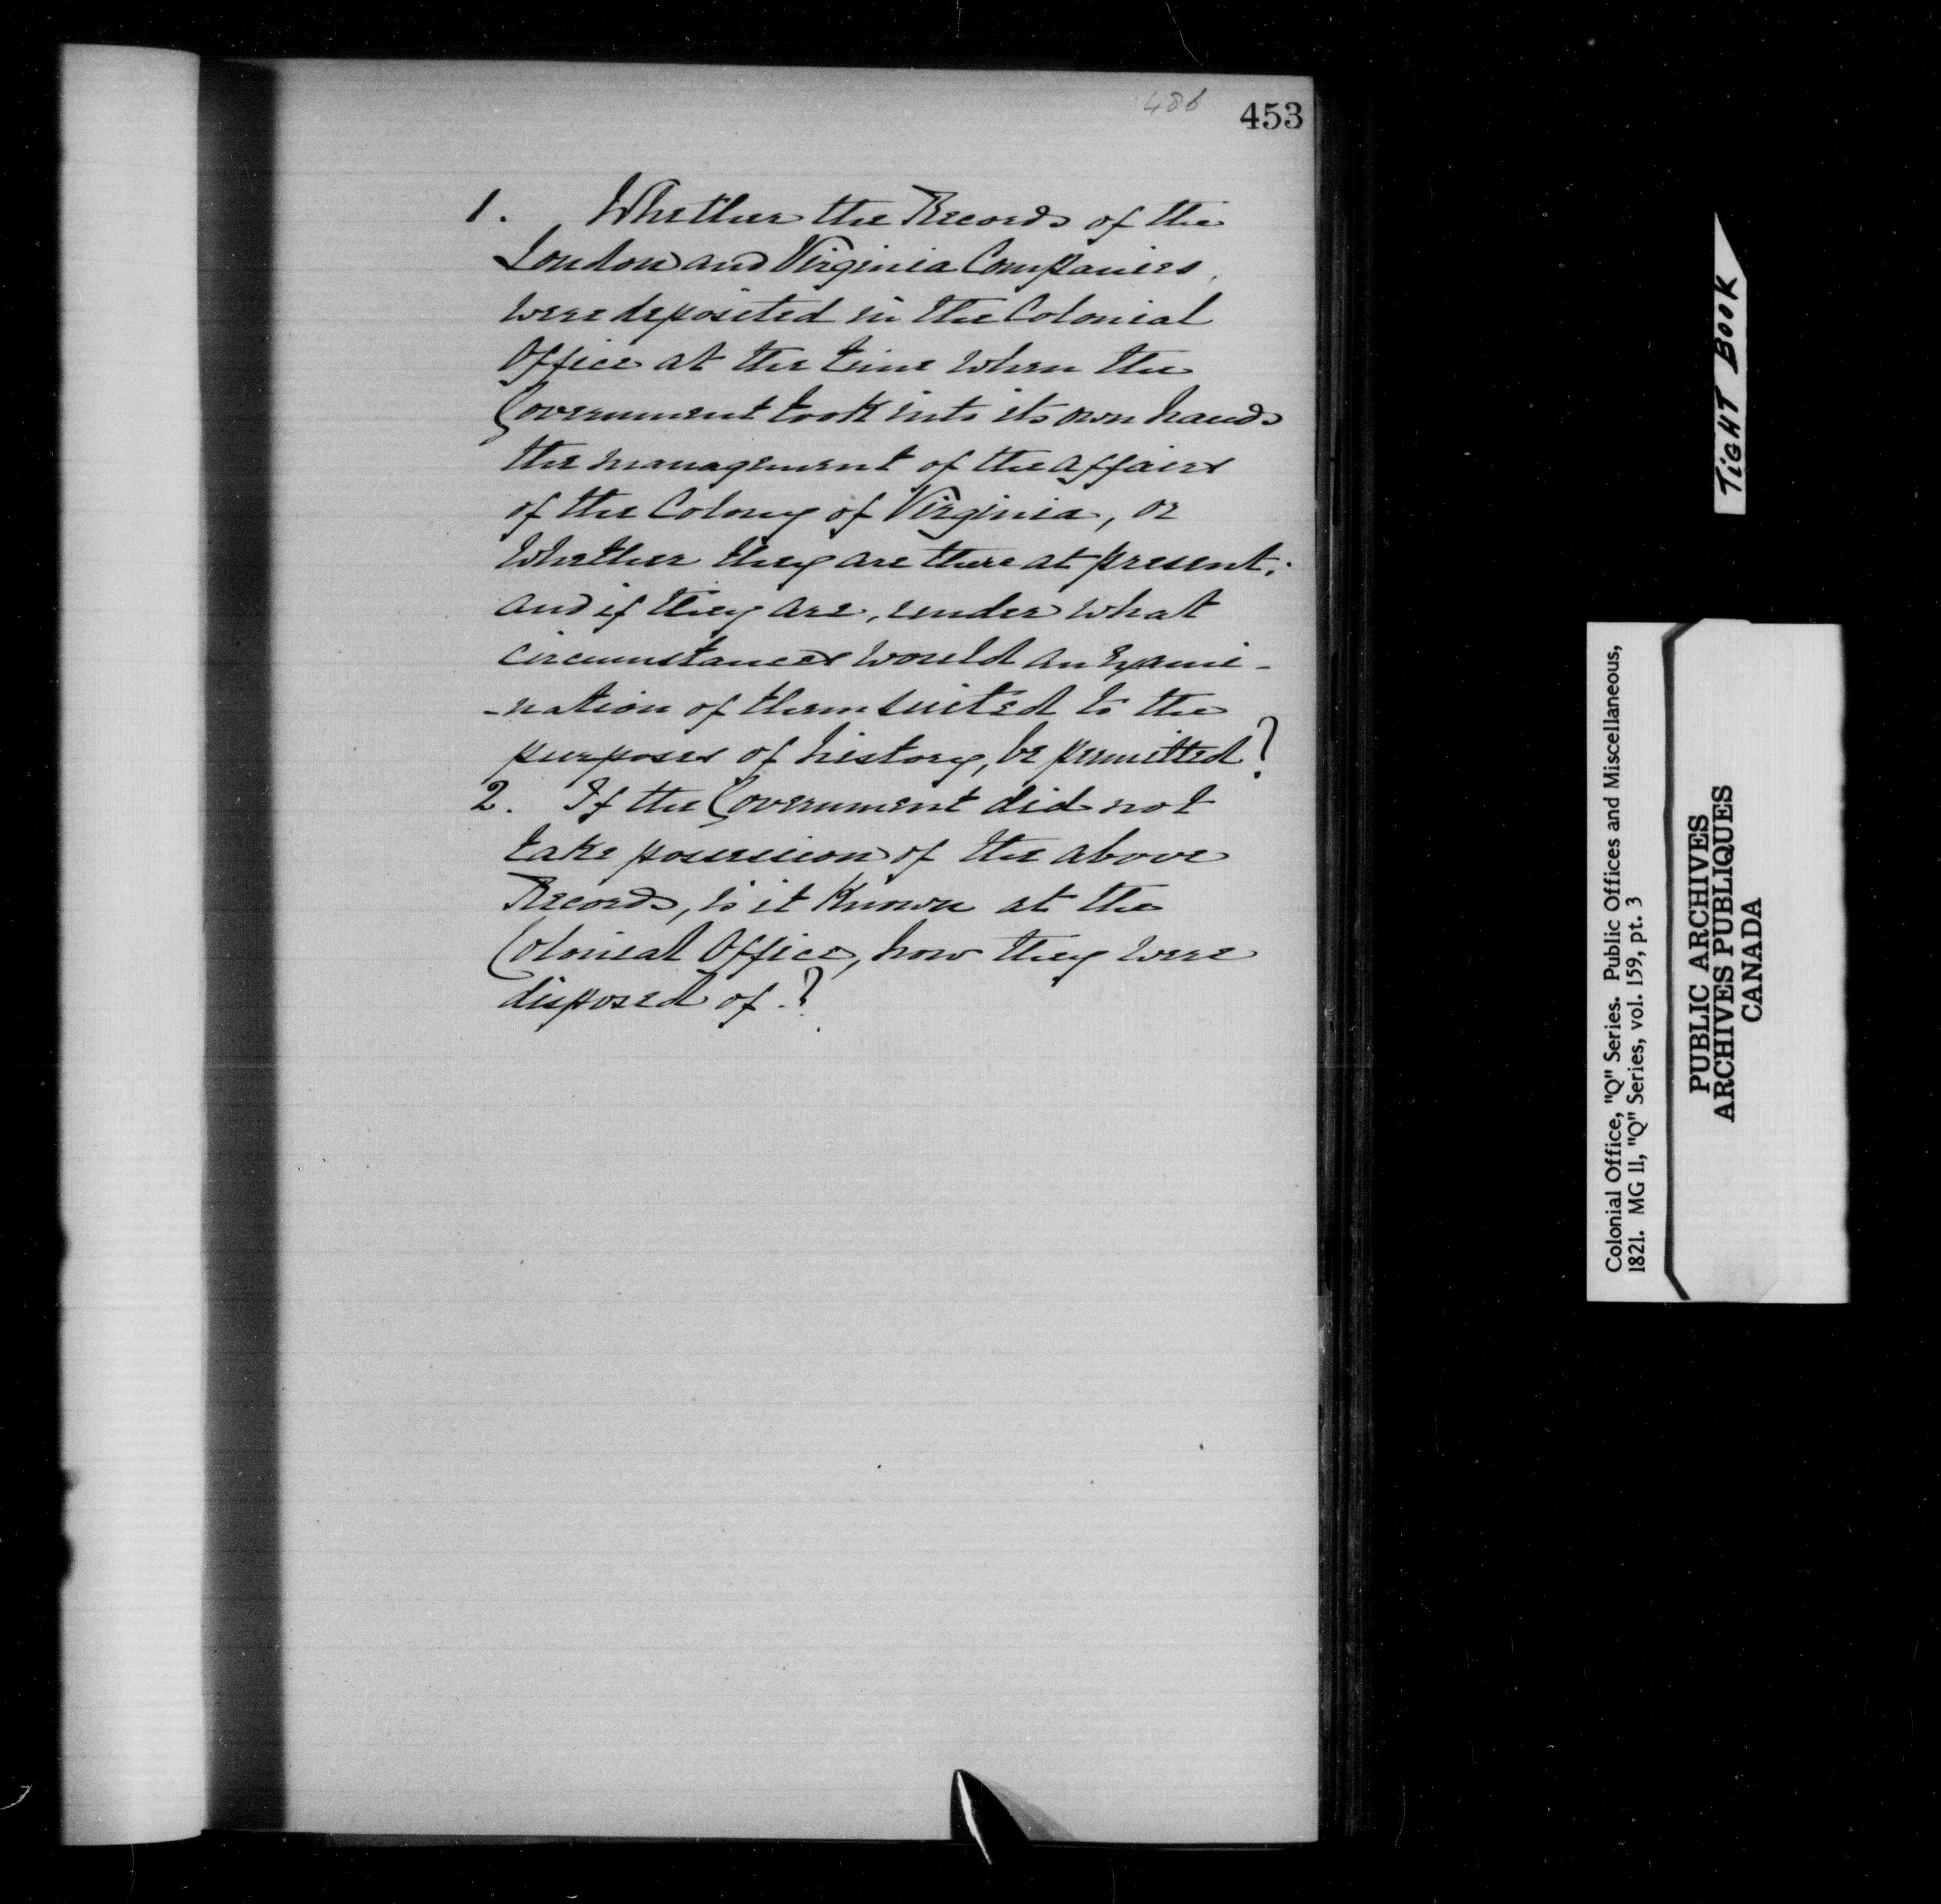 486
453
1. Whether the Records of the
London and Virginia Companies,
were deposited in the Colonial
Office at the time when the
Government took into its own hands
the management of the affairs
of the Colony of Virginia, or
whether they are there at present;
and if they are, under what
circumstances would an Exami-
-nation of them suited to the
purposes of history, be permitted?
2. If the Government did not
take possession of the above
Records, is it known at the
Colonial Office, how they were
disposed of.?
TIGHT BOOK
Colonial Office, "Q" Series. Public Offices and Miscellaneous,
1821. MG 11, "Q" Series, vol. 159, pt. 3
PUBLIC ARCHIVES
ARCHIVES PUBLIQUES
CANADA